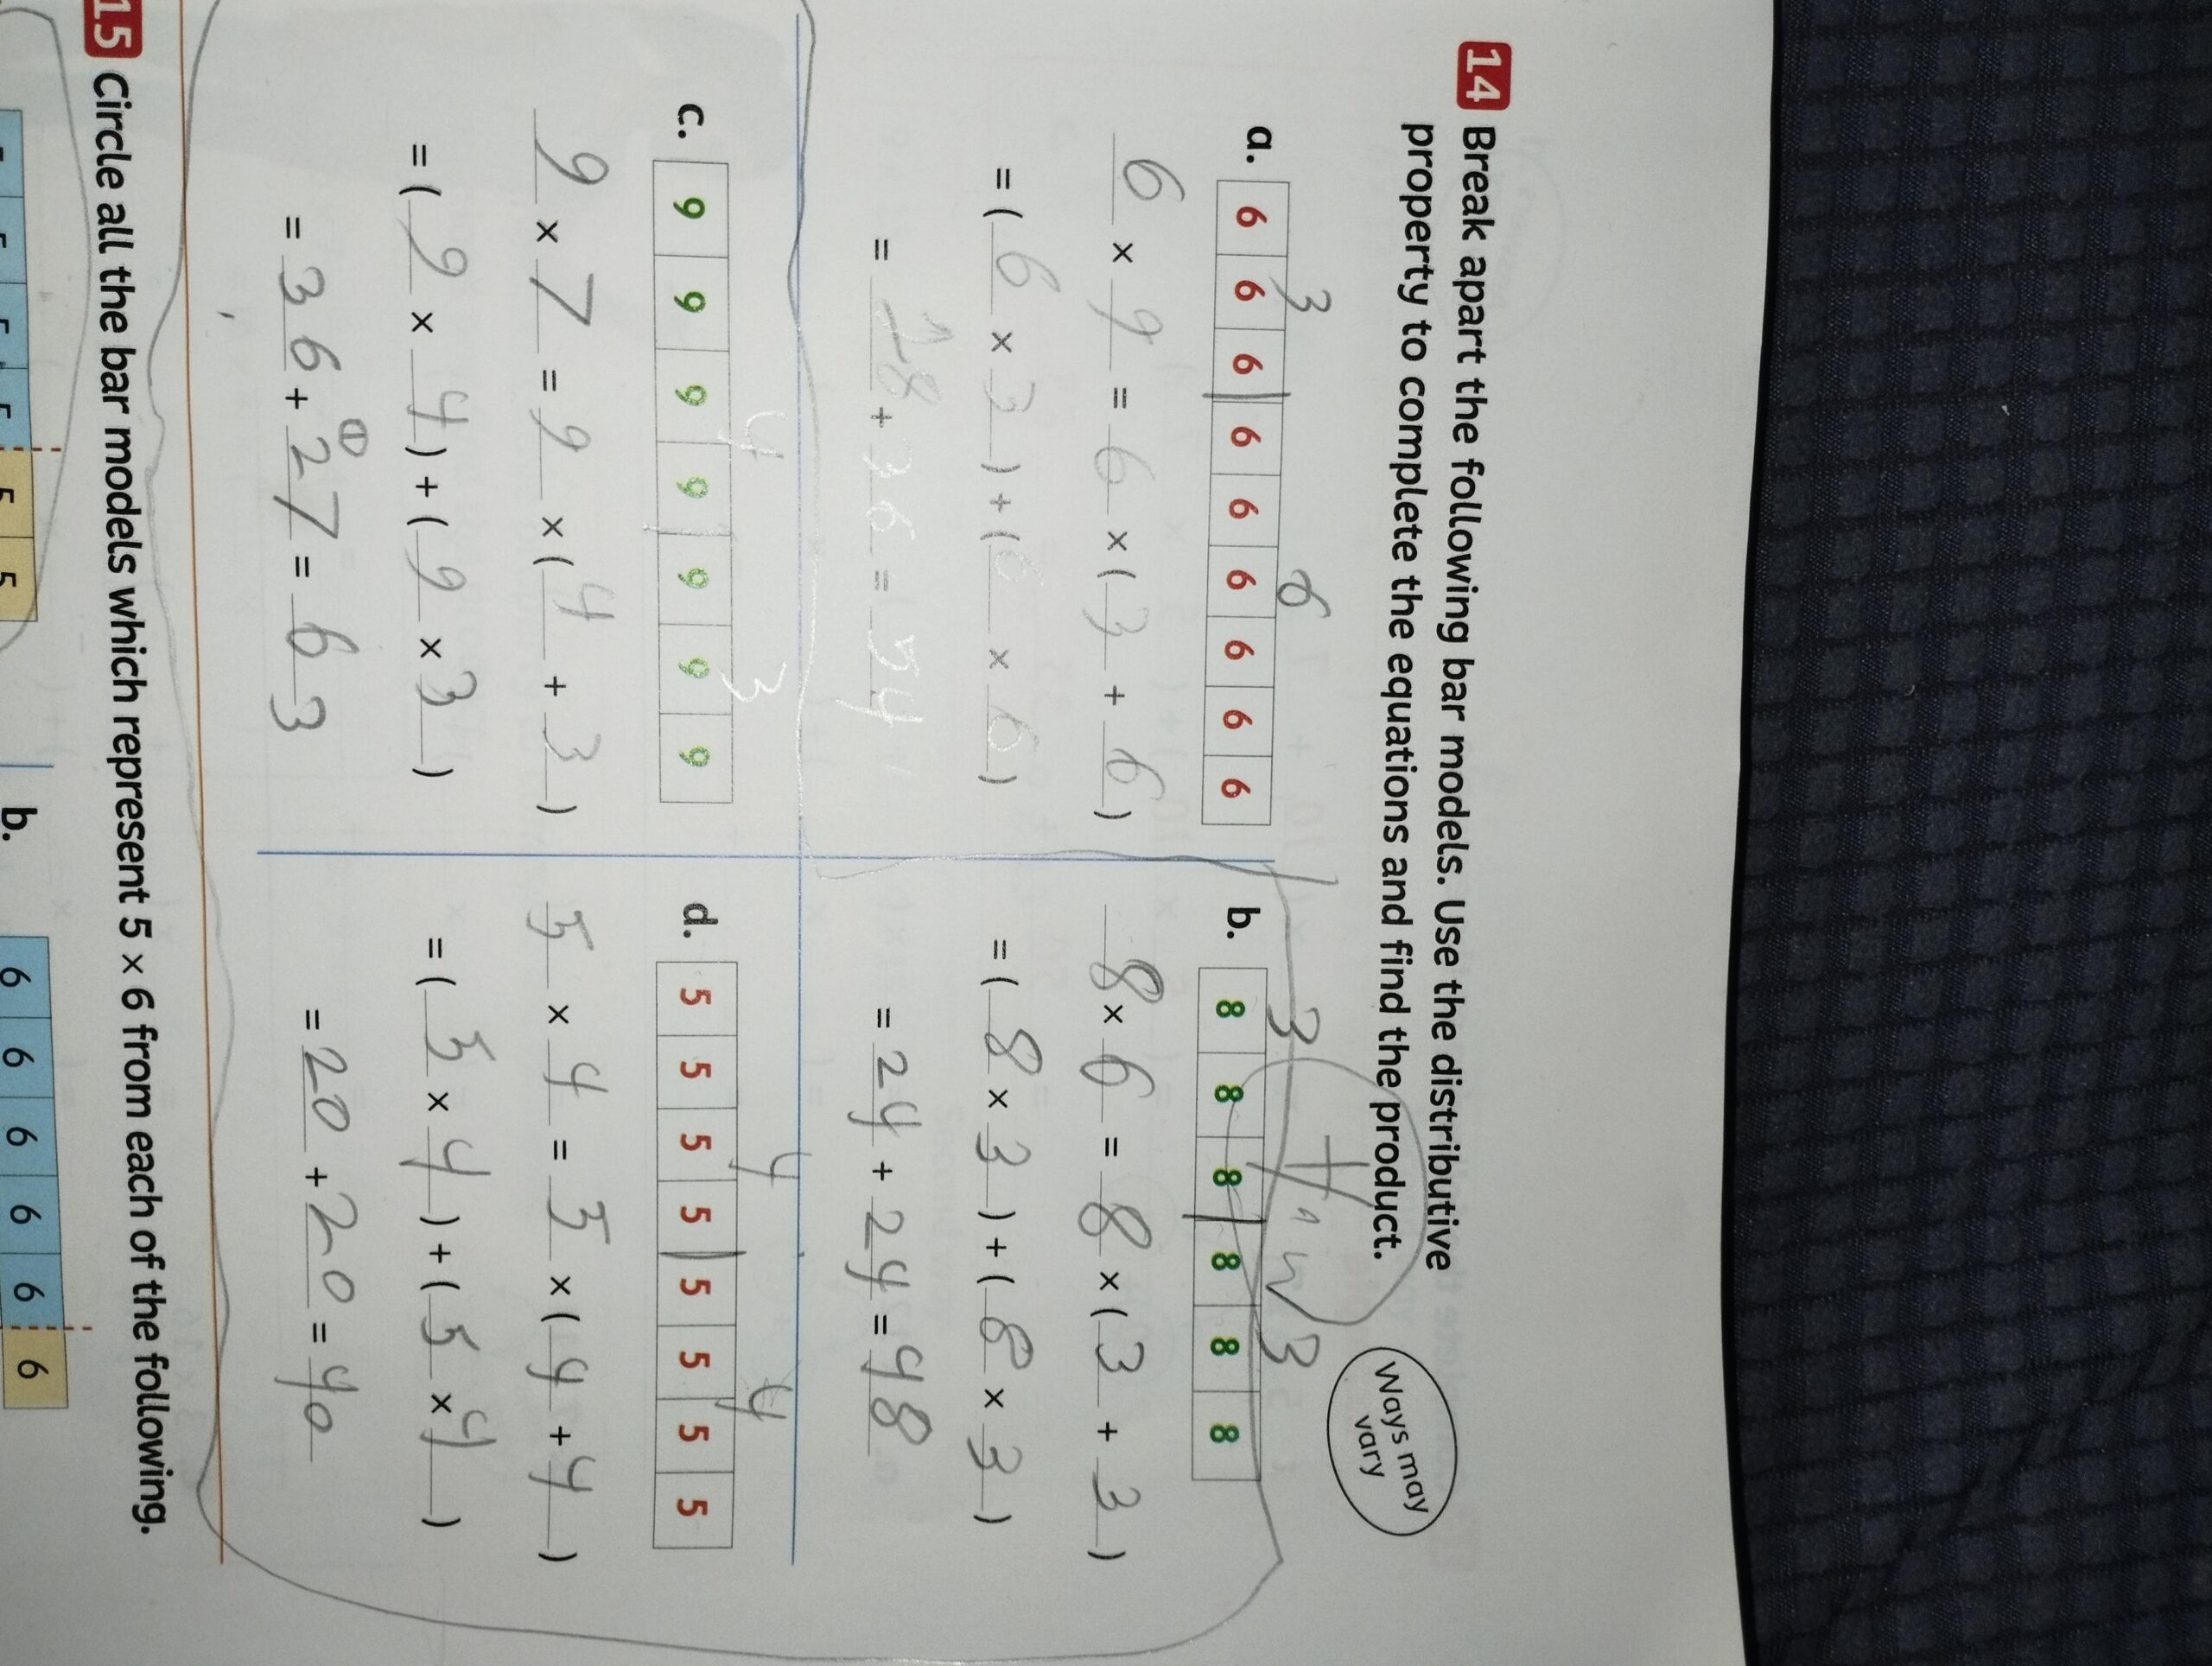 14 Break apart the following bar models. Use the distributive
property to complete the equations and find the product.
Ways may
vary
3 6
a. 6 6 6 6 6 6 6 6 6
6 × 9 = 6 × ( 3 + 6 )
= ( 6 × 3 ) + ( 6 × 6 )
= 18 + 36 = 54
H.w
3 3
b. 8 8 8 8 8 8
8 × 6 = 8 × ( 3 + 3 )
= ( 8 × 3 ) + ( 8 × 3 )
= 24 + 24 = 48
4 3
c. 9 9 9 9 9 9 9
9 × 7 = 9 × ( 4 + 3 )
= ( 9 × 4 ) + ( 9 × 3 )
1
= 36 + 27 = 63
4 4
d. 5 5 5 5 5 5 5 5
5 × 4 = 5 × ( 4 + 4 )
= ( 5 × 4 ) + ( 5 × 4 )
= 20 + 20 = 40
15 Circle all the bar models which represent 5 × 6 from each of the following.
5 5 5 5 5 5
b. 6 6 6 6 6 6